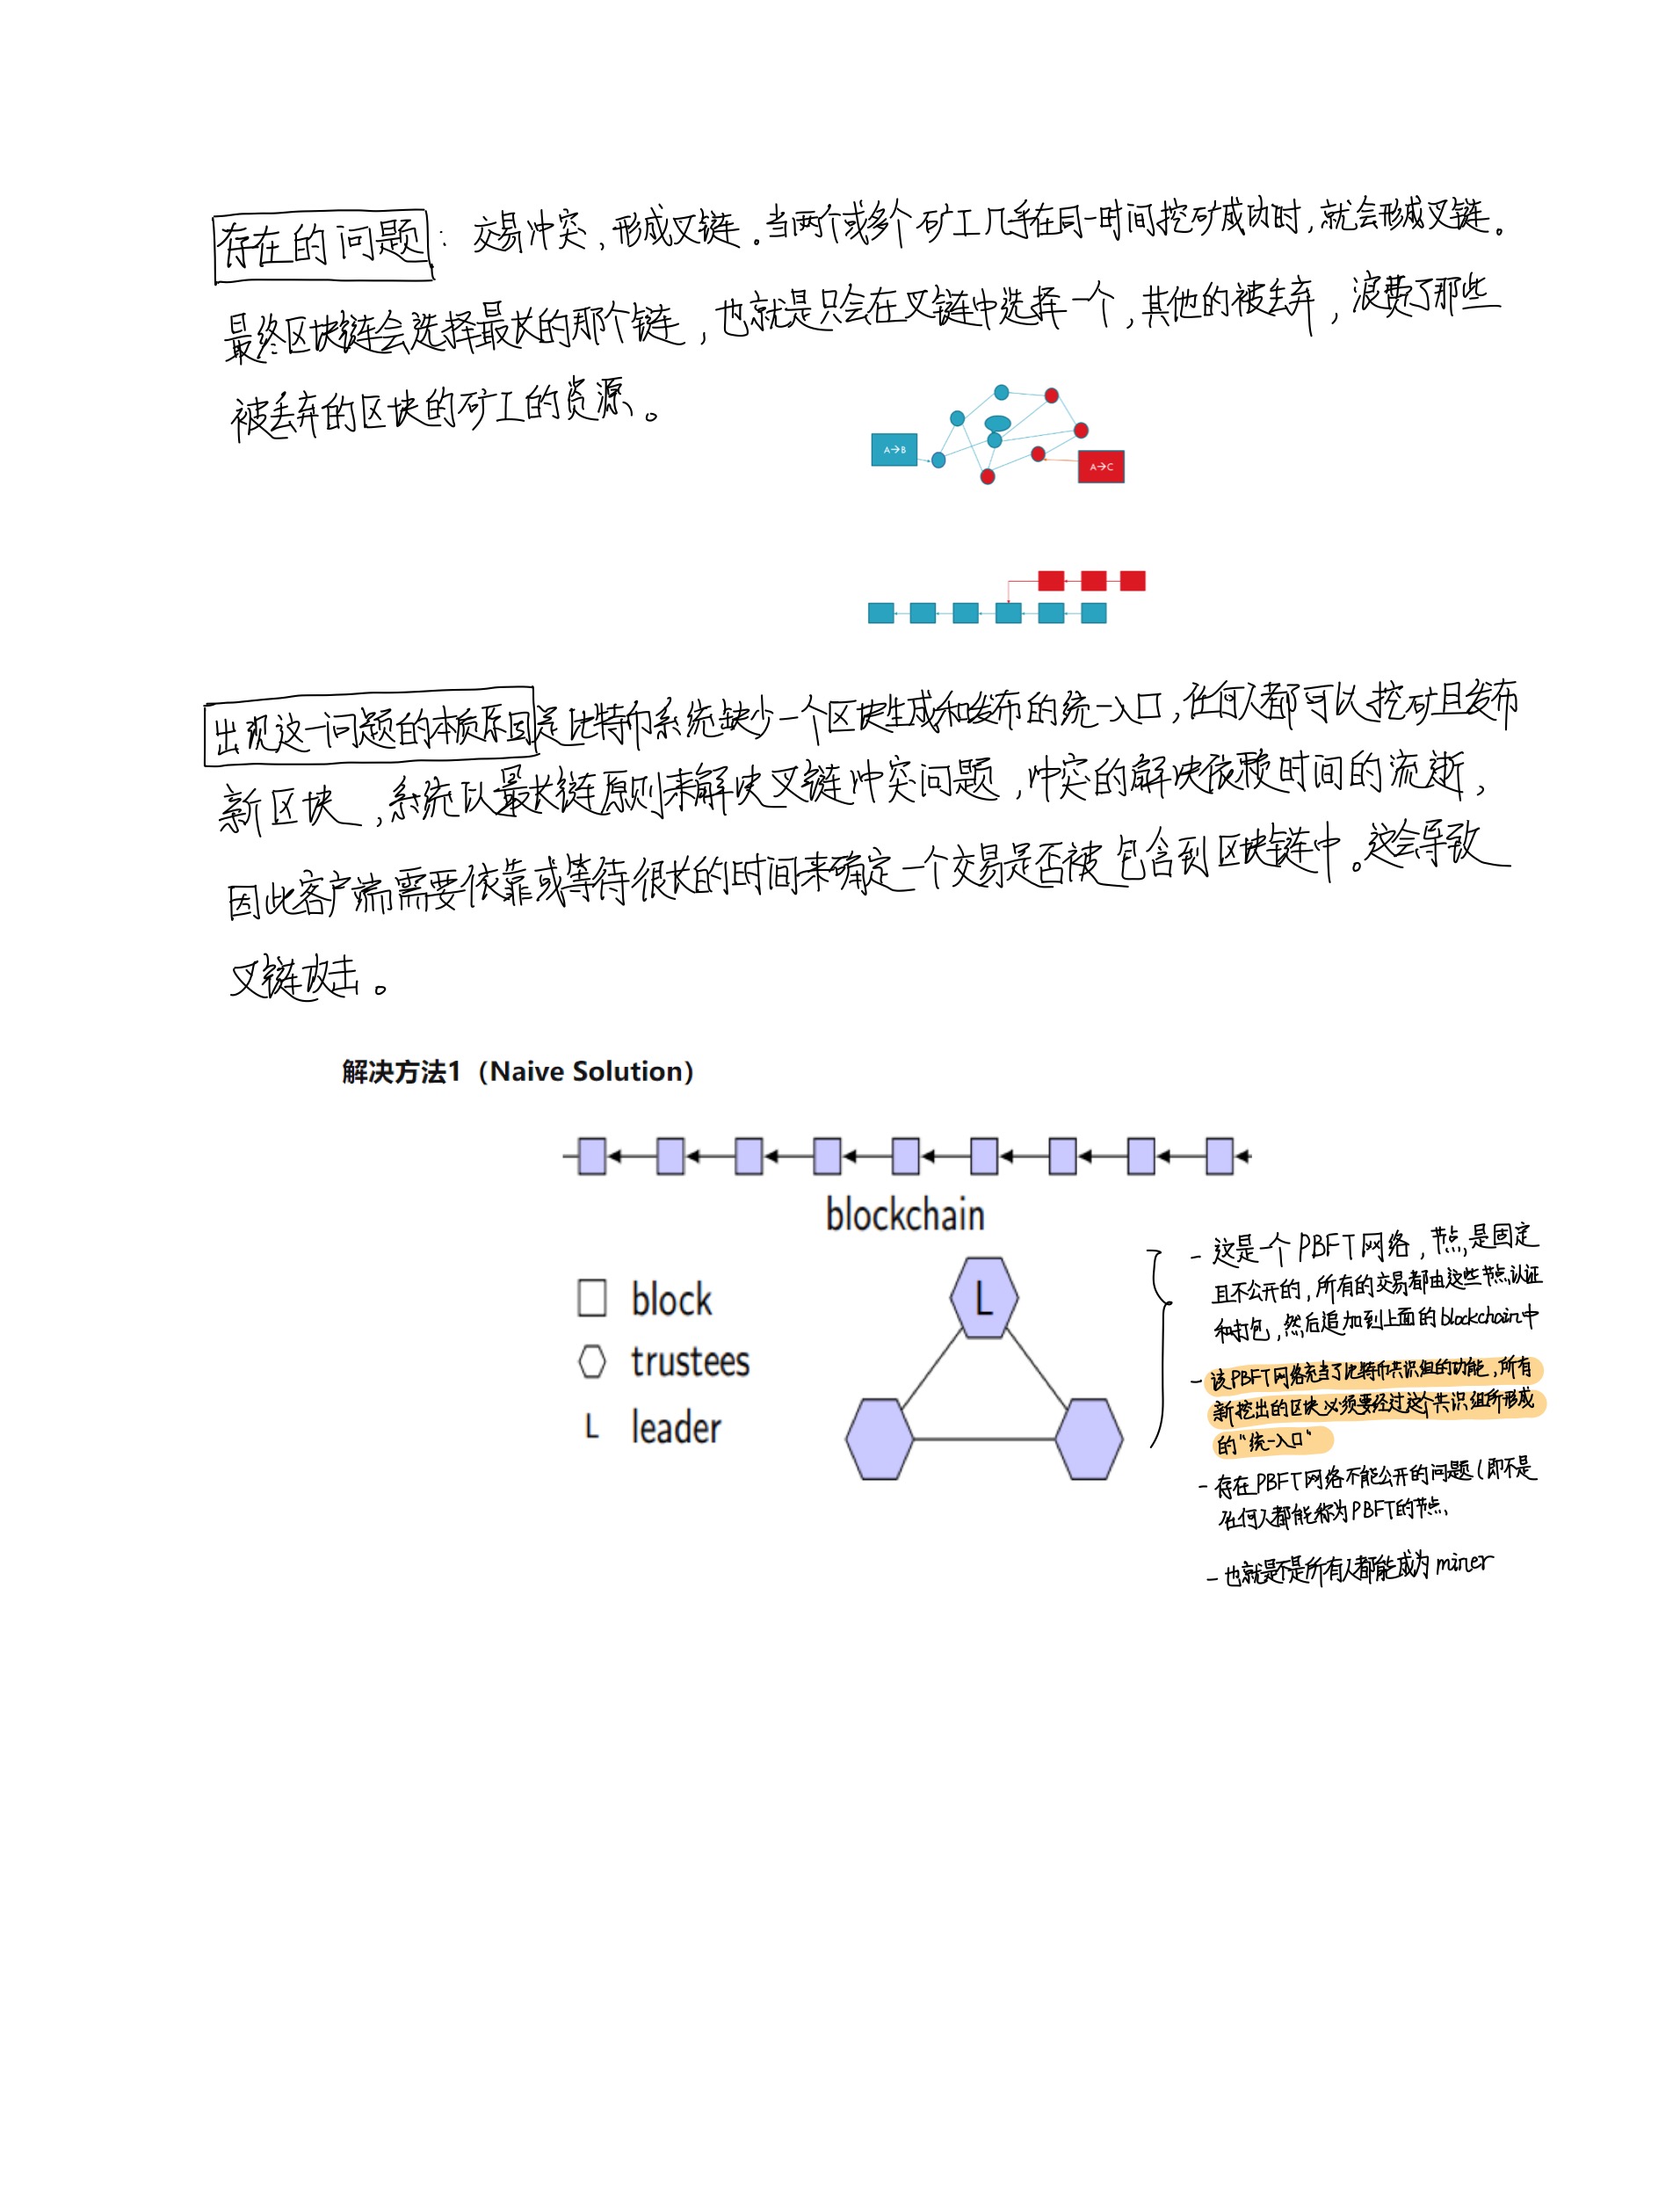 存在的问题：交易冲突，形成叉链。当两个或多个矿工几乎在同一时间挖矿成功时，就会形成叉链。
最终区块链会选择最长的那个链，也就是只会在叉链中选择一个，其他的被丢弃，浪费了那些
被丢弃的区块的矿工的资源。
A→B
A→C
出现这一问题的本质原因是比特币系统缺少一个区块生成和发布的统一入口，任何人都可以挖矿且发布
新区块，系统以最长链原则来解决叉链冲突问题，冲突的解决依赖时间的流逝，
因此客户端需要依靠或等待很长的时间来确定一个交易是否被包含到区块链中。这会导致
叉链攻击。
解决方法1（Naive Solution）
blockchain
block
trustees
L leader
L
- 这是一个PBFT网络，节点是固定
且不公开的，所有的交易都由这些节点认证
和打包，然后追加到上面的blockchain中
- 该PBFT网络充当了比特币共识组的功能，所有
新挖出的区块必须要经过这个共识组所形成
的"统一入口"
- 存在PBFT网络不能公开的问题（即不是
任何人都能称为PBFT的节点
- 也就是不是所有人都能成为miner